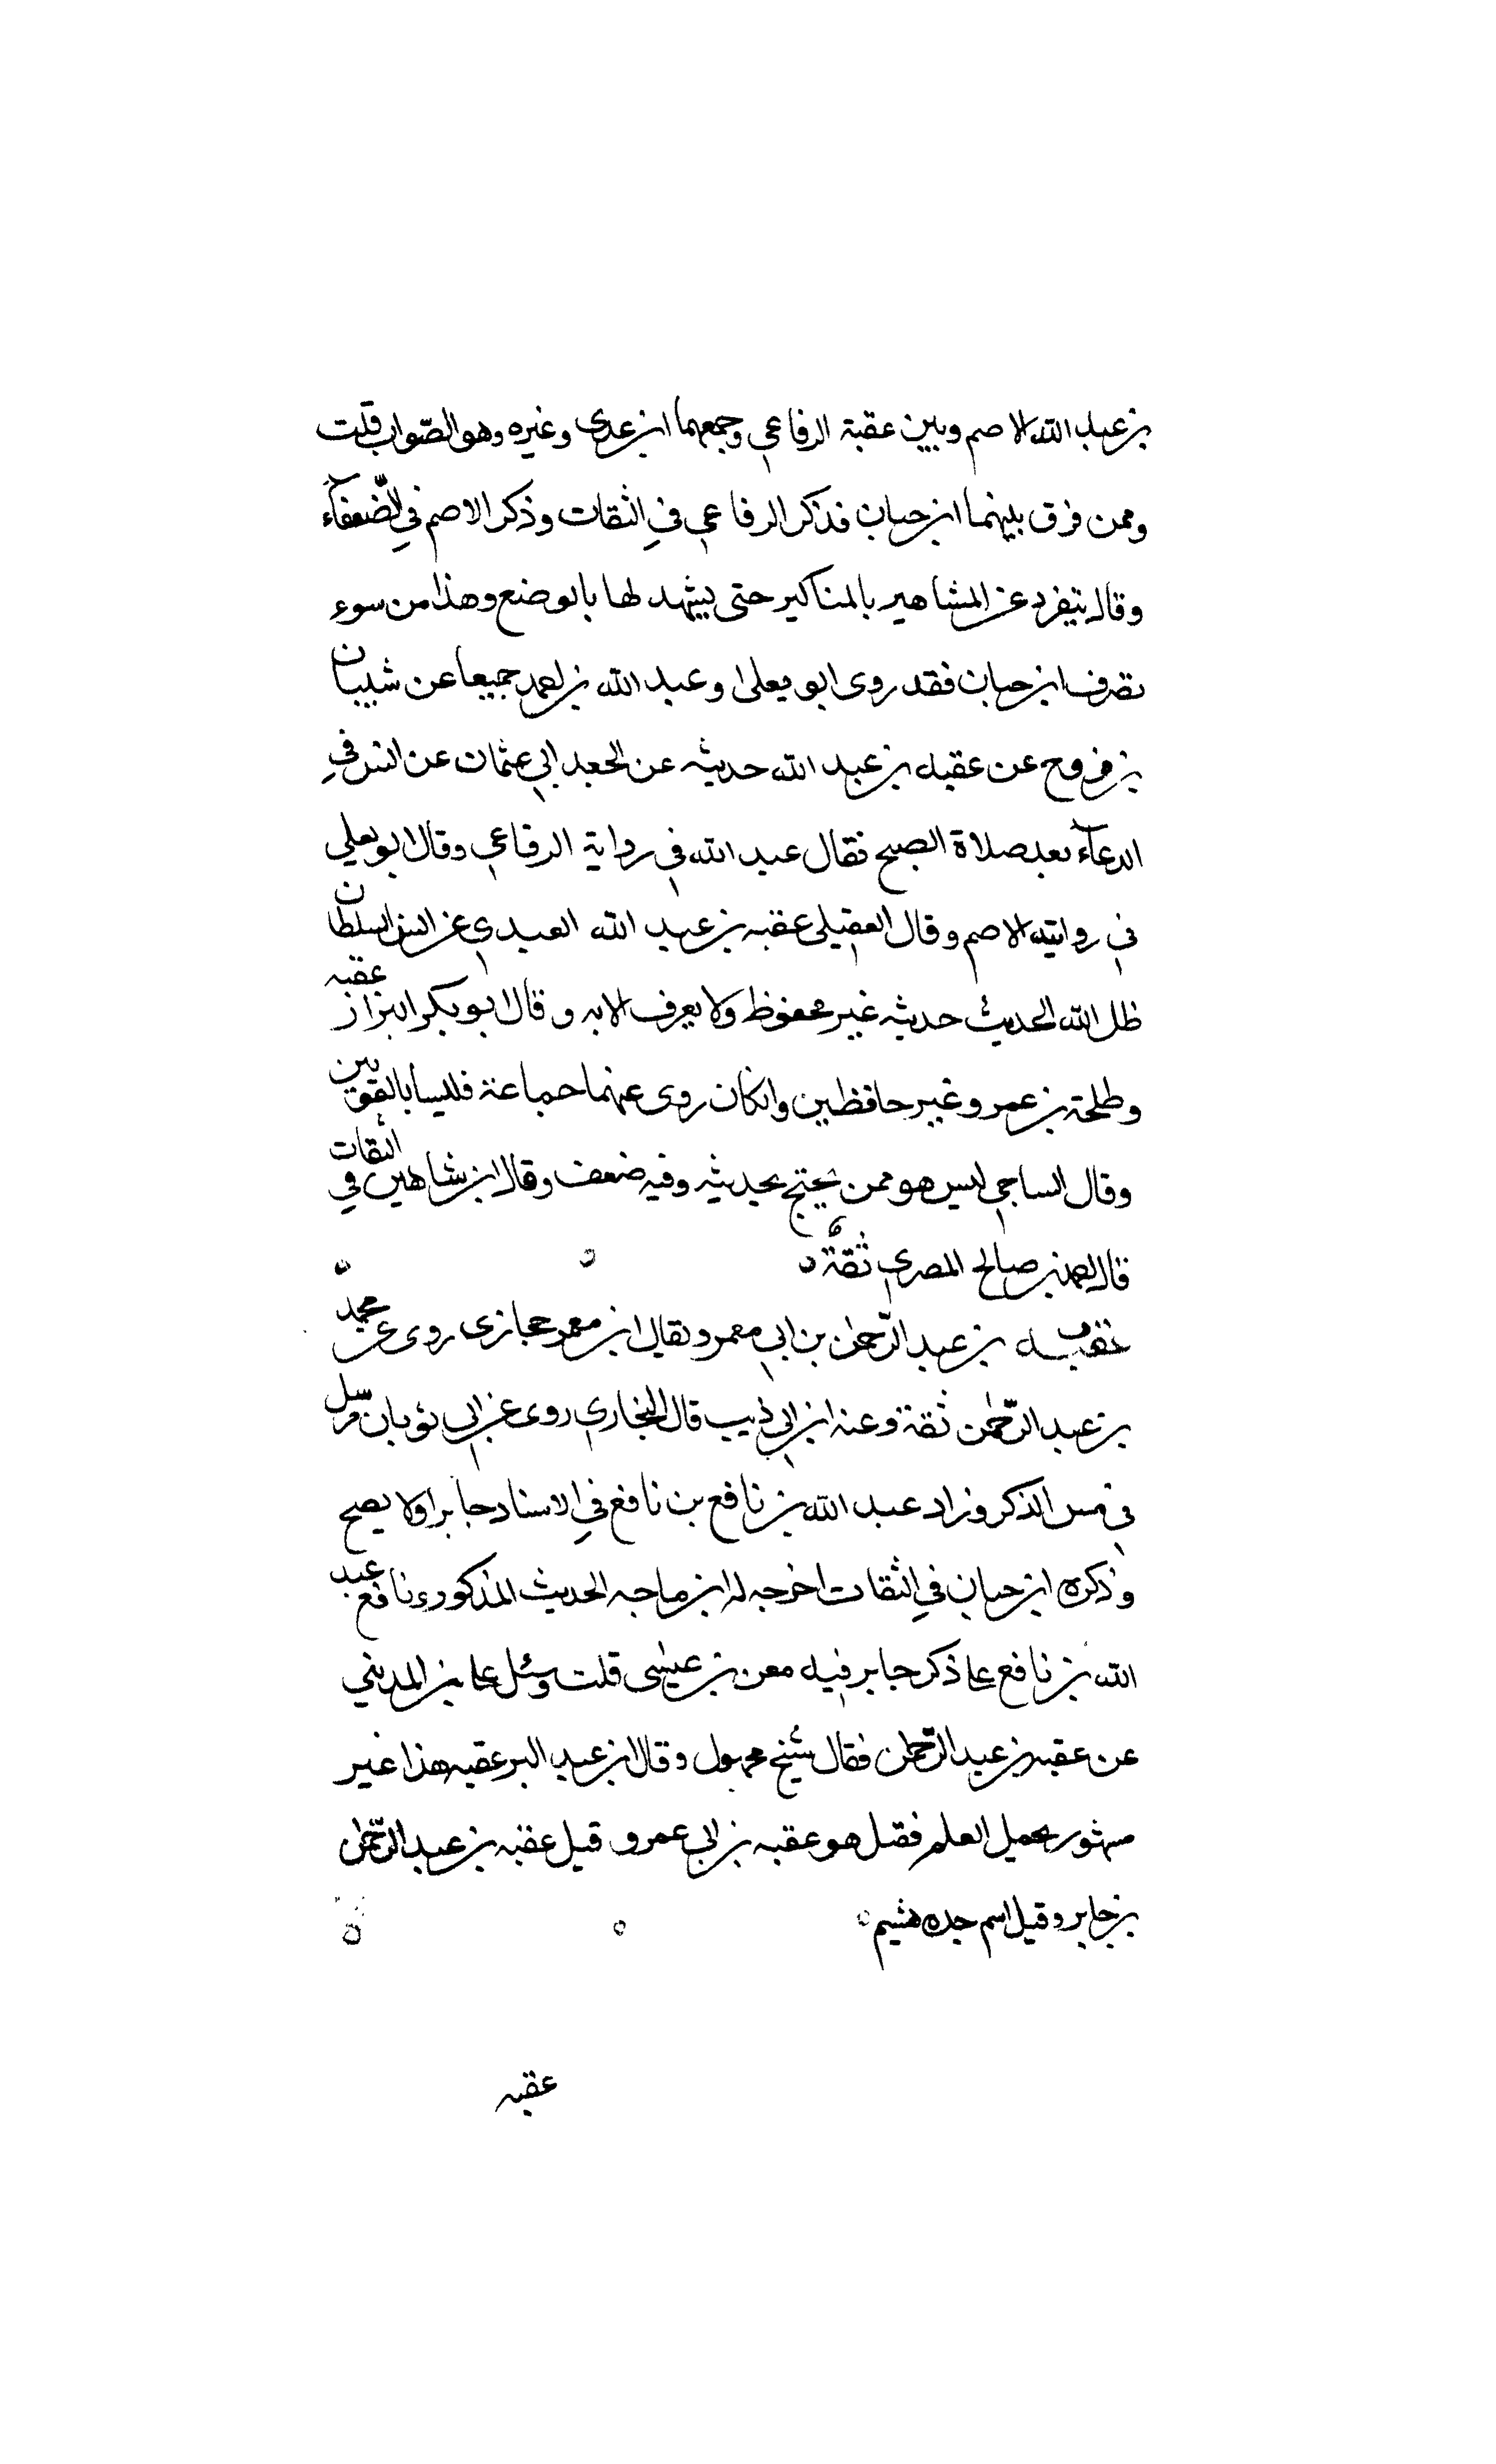 بن عبد الله الاصم وبين عقبة الرفاعي وجمعهما ابن عدي وغيره وهو الصواب قلت
وممن فرق بينهما ابن حبان فذكر الرفاعي في الثقات وذكر الاصم في الضعفآء
وقال يتفرد عن المشاهير بالمناكير حتى يشهد لها بالوضع وهذا من سوء
تصرف ابن حبان فقد روى ابو يعلى وعبد الله بن احمد جميعا عن شيبان
بن فروخ عن عقبه بن عبد الله حديثه عن الجعد ابي عثمان عن انس في
الدعآء بعد صلاة الصبح فقال عبد الله في رواية الرفاعي وقال ابو يعلي
في روايته الاصم وقال العقيلي عقبه بن عبد الله العبدي عن انس السلطان
ظل الله الحديث حديثه غير محفوظ ولا يعرف الا به وقال ابو بكر البزار عقبه
وطلحة بن عمرو غير حافظين وان كان روى عنهما جماعة فليسا بالقويين
وقال الساجي ليس هو ممن يحتج بحديثه وفيه ضعف وقال ابن شاهين في الثقات
قال احمد بن صالح المصري ثقة
عقبه بن عبد الرحمن بن ابي معمر ويقال ابن معمر حجازى روى عن محمد
بن عبد الرحمن ثقة وعنه ابن ابي ذيب قال البخاري روى عن ابن ثوبان مرسل
في مس الذكر وزاد عبد الله بن نافع بن نافع في الاسناد جابرا ولا يصح
وذكره ابن حبان في الثقات اخرجه له ابن ماجه الحديث المذكور ونافع عبد
الله بن نافع على ذكر جابر فيه معن بن عيسى قلت وسئل على بن المديني
عن عقبه بن عبد الرحمن فقال شيخ مجهول وقال ابن عبد البر عقبه هذا غير
مشهور بحمل العلم فقيل هو عقبه بن ابي عمرو وقيل عقبه بن عبد الرحمن
بن جابر وقيل اسم جده هشيم
عقبه